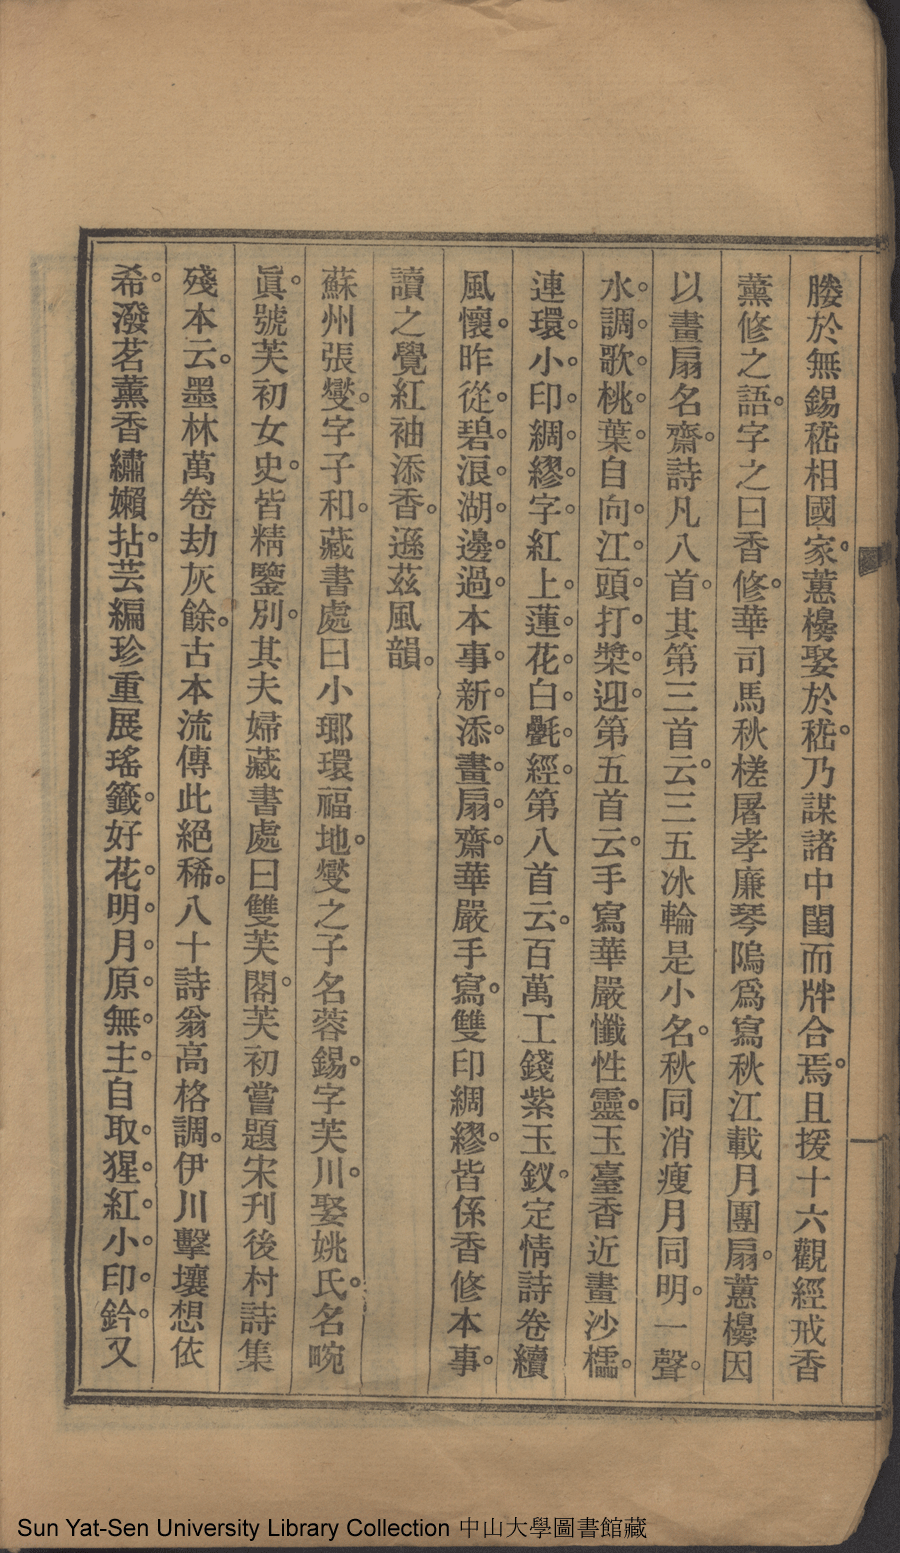 媵於無錫嵇相國家。蕙櫋娶於嵇。乃謀諸中閨而牉合焉。且援十六觀經戒香
薰修之語。字之曰香修。華司馬秋槎屠孝廉琴隖爲寫秋江載月團扇。蕙櫋因
以畫扇名齋。詩凡八首。其第三首云。三五冰輪是小名。秋同消瘦月同明。一聲。
水。調。歌。桃。葉。自向。江。頭。打。槳。迎。第五首云。手寫華嚴懺性靈。玉臺香近畫沙檽。
連環。小。印。綢。繆。字。紅上。蓮。花。白㲲。經。第八首云。百萬工錢紫玉釵。定情詩卷續
風懷。昨從。碧。浪。湖。邊。過。本事。新。添。畫。扇。齋。華嚴手寫。雙印綢繆。皆係香修本事。
讀之覺紅袖添香。遜茲風韻。
蘇州張燮。字子和。藏書處曰小瑯環福地。燮之子名蓉錫。字芙川。娶姚氏。名畹
眞。號芙初女史。皆精鑒別。其夫婦藏書處曰雙芙閣。芙初嘗題宋刋後村詩集
殘本云。墨林萬卷劫灰餘。古本流傳此絕稀。八十詩翁高格調。伊川擊壤想依
希。潑茗薰香繡嬾拈。芸編珍重展瑤籤。好花。明。月。原。無。主。自取。猩。紅。小。印。鈐。又